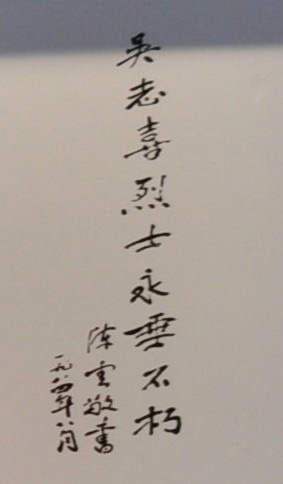 吴志喜烈士永垂不朽
陈云敬书
一九八四年八月